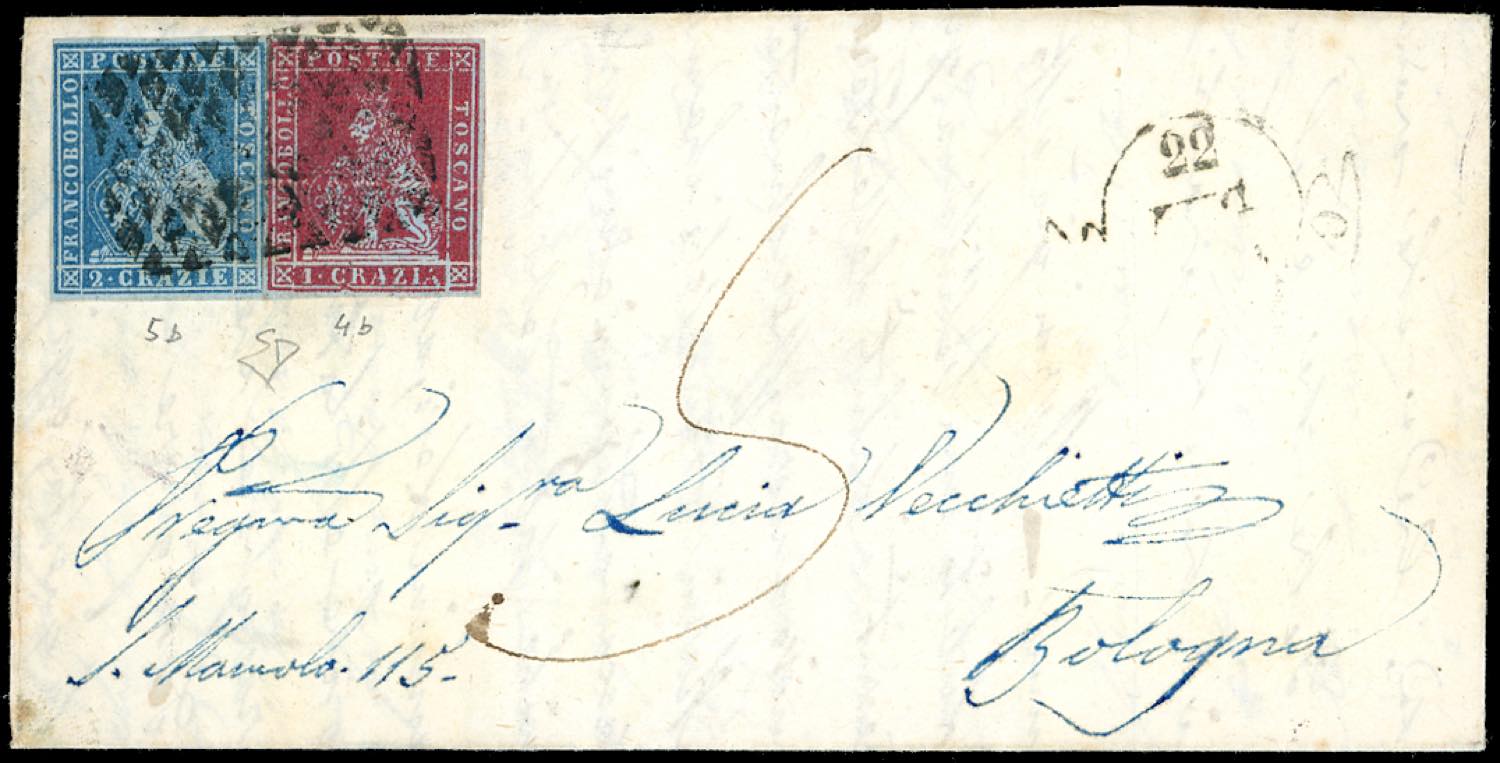 POSTALE POSTALE
FRANCOBOLLO TOSCANO FRANCOBOLLO TOSCANO
2·CRAZIE 1·CRAZIA
5b 4b
22
5
Pregma Sig.ra Lucia Vecchietti
S. Mamolo. 115.
Bologna